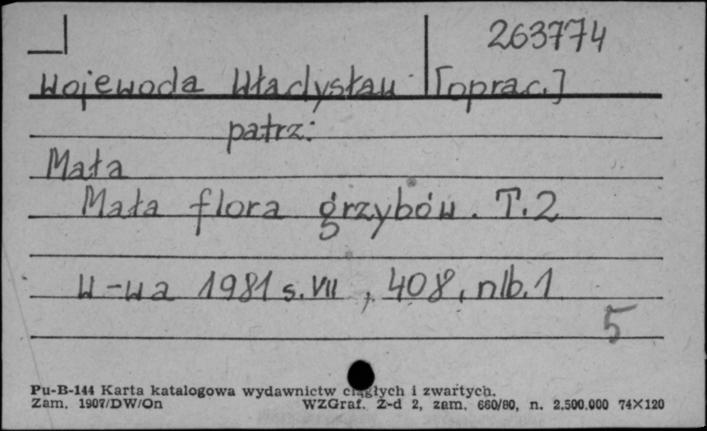 263774
Wojewoda Władysław [oprac.]
patrz:
Mała
Mała flora grzybów. T.2
W-wa 1981 s. VII, 408, nlb. 1
5
Pu-B-144 Karta katalogowa wydawnictw ciągłych i zwartych.
Zam. 1907/DW/On WZGraf. Z-d 2, zam. 660/80, n. 2.500.000 74×120